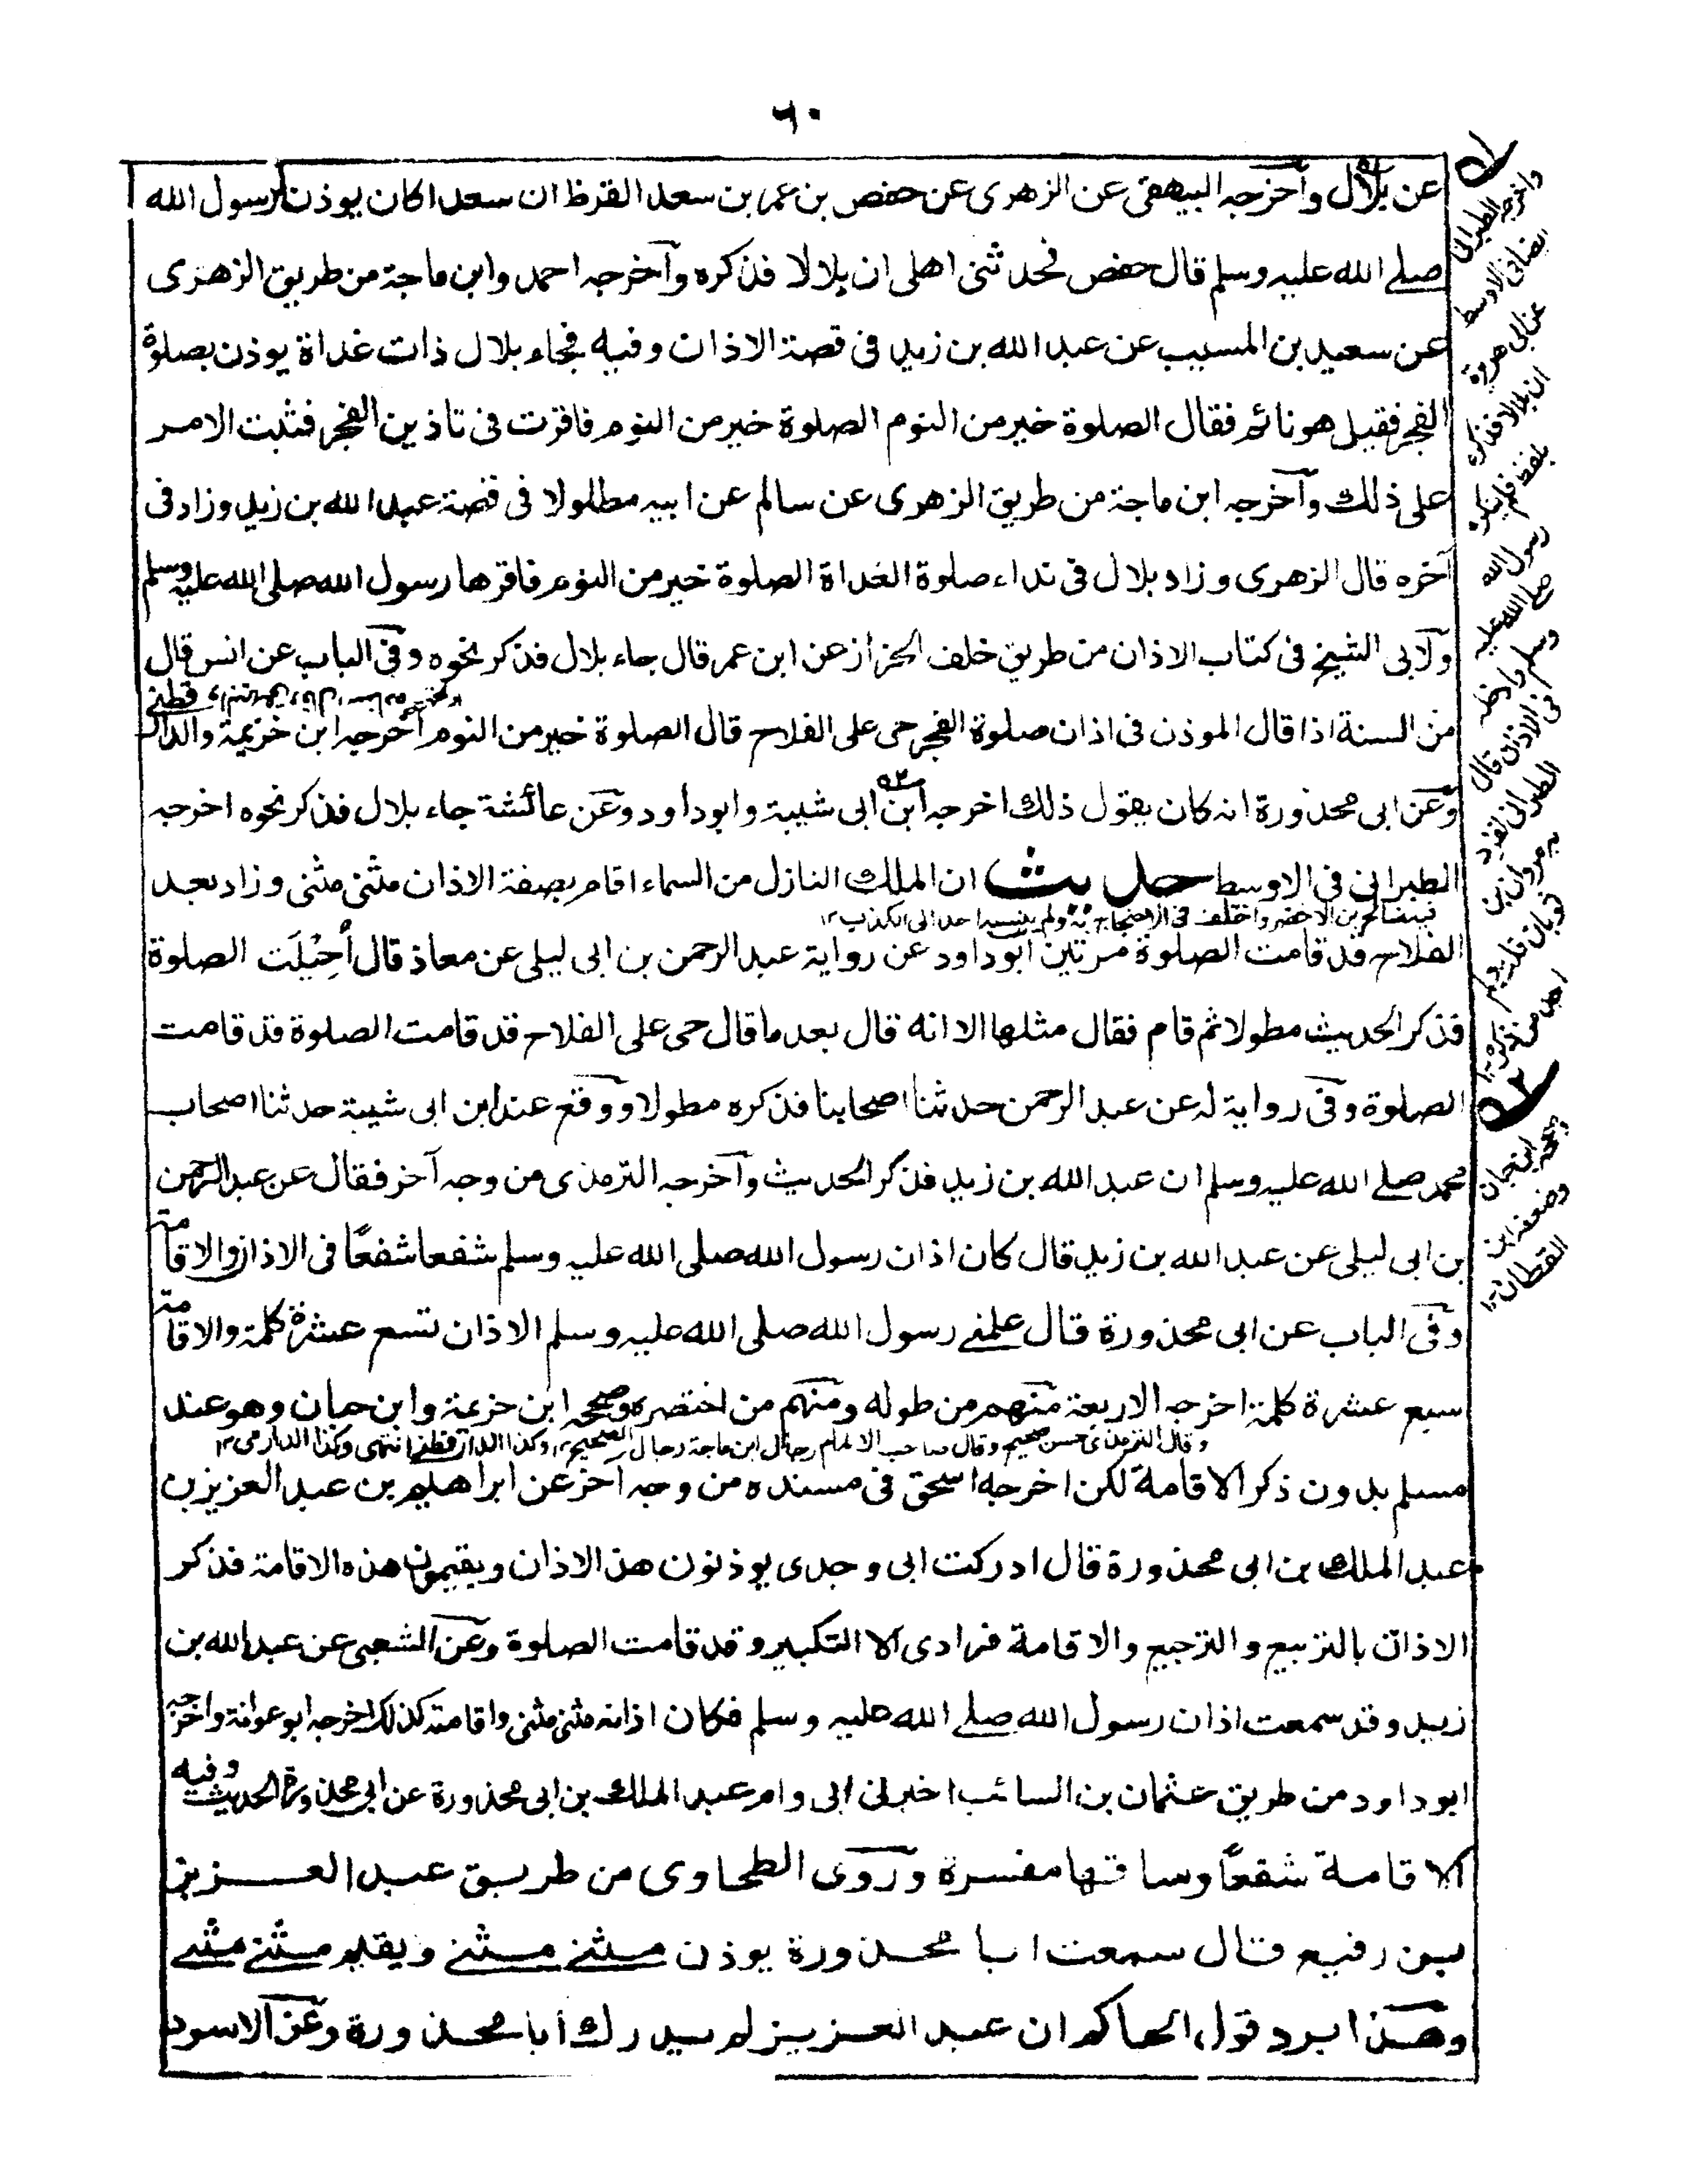 ٦٠
عن بلال وآخرجه البيهقى عن الزهرى عن حفص بن عمر بن سعد القرظ ان سعدا كان يوذن لرسول الله
صلے الله عليه وسلم قال حفص فحدثنى اهلى ان بلالا فذكره وآخرجه احمد وابن ماجة من طريق الزهرى
عن سعيد بن المسيب عن عبد الله بن زيد فى قصة الاذان وفيه فجاء بلال ذات غداة يوذن بصلوة
الفجر فقيل هو نائم فقال الصلوة خير من النوم الصلوة خير من النوم فاقرت فى تاذين الفجر فثبت الامر
على ذلك وآخرجه ابن ماجة من طريق الزهرى عن سالم عن ابيه مطلولا فى قصة عبد الله بن زيد وزاد فى
آخره قال الزهرى وزاد بلال فى نداء صلوة الغداة الصلوة خير من النوم فاقرها رسول الله صلى الله عليه وسلم
ولآبى الشيخ فى كتاب الاذان من طريق خلف الحزاز عن ابن عمر قال جاء بلال فذكر نحوه وفى الباب عن انس قال
من السنة اذا قال الموذن فى اذان صلوة الفجر حى على الفلاح قال الصلوة خير من النوم آخرجه ابن خزيمة والدارقطنے
وعن ابى محذورة انه كان يقول ذلك اخرجه ابن ابى شيبة وابوداود وعن عائشة جاء بلال فذكر نحوه اخرجه
الطبرانى فى الاوسط حديث ان الملك النازل من السماء اقام بصفة الاذان مثنى مثنى وزاد بعد
فيه صالح بن الاخضر واختلف فى الاحتجاج به ولم ينسبه احد الى الكذب ١٢
الفلاح قد قامت الصلوة مرتين ابوداود عن رواية عبد الرحمن بن ابى ليلى عن معاذ قال أُحِيْلَت الصلوة
فذكر الحديث مطولا ثم قام فقال مثلها الا انه قال بعد ما قال حى على الفلاح قد قامت الصلوة قد قامت
الصلوة وفى رواية له عن عبد الرحمن حدثنا اصحابنا فذكره مطولا ووقع عند ابن ابى شيبة حدثنا اصحاب
محمد صلے الله عليه وسلم ان عبد الله بن زيد فذكر الحديث وآخرجه الترمذى من وجه آخر فقال عن عبد الرحمن
بن ابى ليلى عن عبد الله بن زيد قال كان اذان رسول الله صلى الله عليه وسلم شفعا شفعًا فى الاذان والاقامة
وفى الباب عن ابى محذورة قال علمنے رسول الله صلى الله عليه وسلم الاذان تسع عشرة كلمة والاقامة
سبع عشرة كلمة اخرجه الاربعة منهم من طوله ومنهم من اختصره وصححه ابن خزيمة وابن حبان وهو عند
وقال الترمذى حسن صحيح وقال صاحب الالمام رجال ابن ماجة رجال الصحيح ١٢ وكذا الدارقطنے انتهى وكذا الدارمى ١٢
مسلم بدون ذكر الاقامة لكن اخرجه اسحق فى مسنده من وجه آخر عن ابراهيم بن عبد العزيز بن
عبد الملك بن ابى محذورة قال ادركت ابى وجدى يوذنون هذا الاذان ويقيمون هذه الاقامة فذكر
الاذان بالتربيع والترجيع والاقامة فرادى الا التكبير وقد قامت الصلوة وعن الشعبى عن عبد الله بن
زيد وقد سمعت اذان رسول الله صلے الله عليه وسلم فكان اذانه مثنى مثنى واقامته كذلك اخرجه ابو عوانة واخرجه
ابوداود من طريق عثمان بن السائب اخبرنى ابى وام عبد الملك بن ابى محذورة عن ابى محذورة الحديث وفيه
الاقامة شفعًا وساقها مفسرة وروى الطحاوى من طريق عبد العزيز
بن رفيع قال سمعت ابا محذورة يوذن مثنے مثنے ويقيم مثنے مثنے
وهذا يرد قول الحاكم ان عبد العزيز لم يدرك ابا محذورة وعن الاسود
واخرجه الطبرانى
ايضا فى الاوسط
عن ابى هريرة
ان بلالا فذكره
بلفظ
رسول الله
صلے الله عليه
وسلم وادخله
فى الاذان قال
الطبرانى تفرد
به مروان بن
ثوبان قلت ولم
اجد من ذكره ١٢
٥٢
وصححه ابن حبان
وضعفه ابن
القطان ١٢